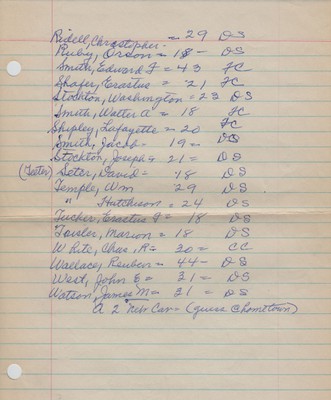 Ridell, Christopher - = 29 DS
Ruby, Orson = 18 - DS
Smith, Edward F = 43 FC
Shafer, Erastus = 21 FC
Stockton, Washington = 23 DS
Smith, Walter A = 18 FC
Shipley, Lafayette = 20 FC
Smith, Jacob = 19 = DS
Stockton, Joseph = 21 = DS
(Teeter) Deter, David = 18 DS
Temple, Wm 29 DS
" Hutchison = 24 DS
Tucker, Erastus G = 18 DS
Tansler, Marion = 18 DS
White, Chas, R = 30 = CC
Wallace, Reuben = 44 - DS
West, John E = 31 = DS
Watson, James M = 31 = DS
A 2 Nebr Cav = (guess C hometown)